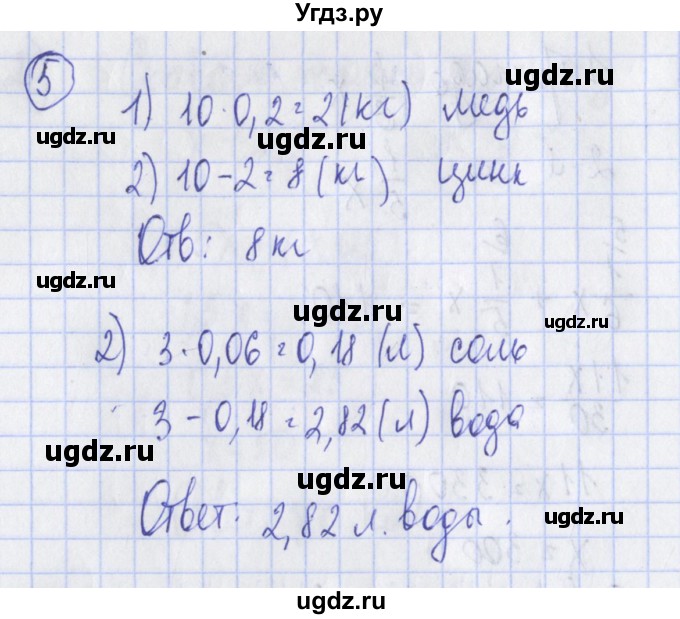 Угдз.ру
5
ugdz.ru
1) 10 · 0,2 = 2 (кг) медь
ugdz.ru ugdz.ru ugdz.ru
2) 10 - 2 = 8 (кг) цинк
Отв: 8 кг
ugdz.ru ugdz.ru
ugdz.ru ugdz.ru
2) 3 · 0,06 = 0,18 (л) соль
3 - 0,18 = 2,82 (л) вода
ugdz.ru ugdz.ru ugdz.ru
Ответ: 2,82 л. воды.
ugdz.ru ugdz.ru
ugdz.ru